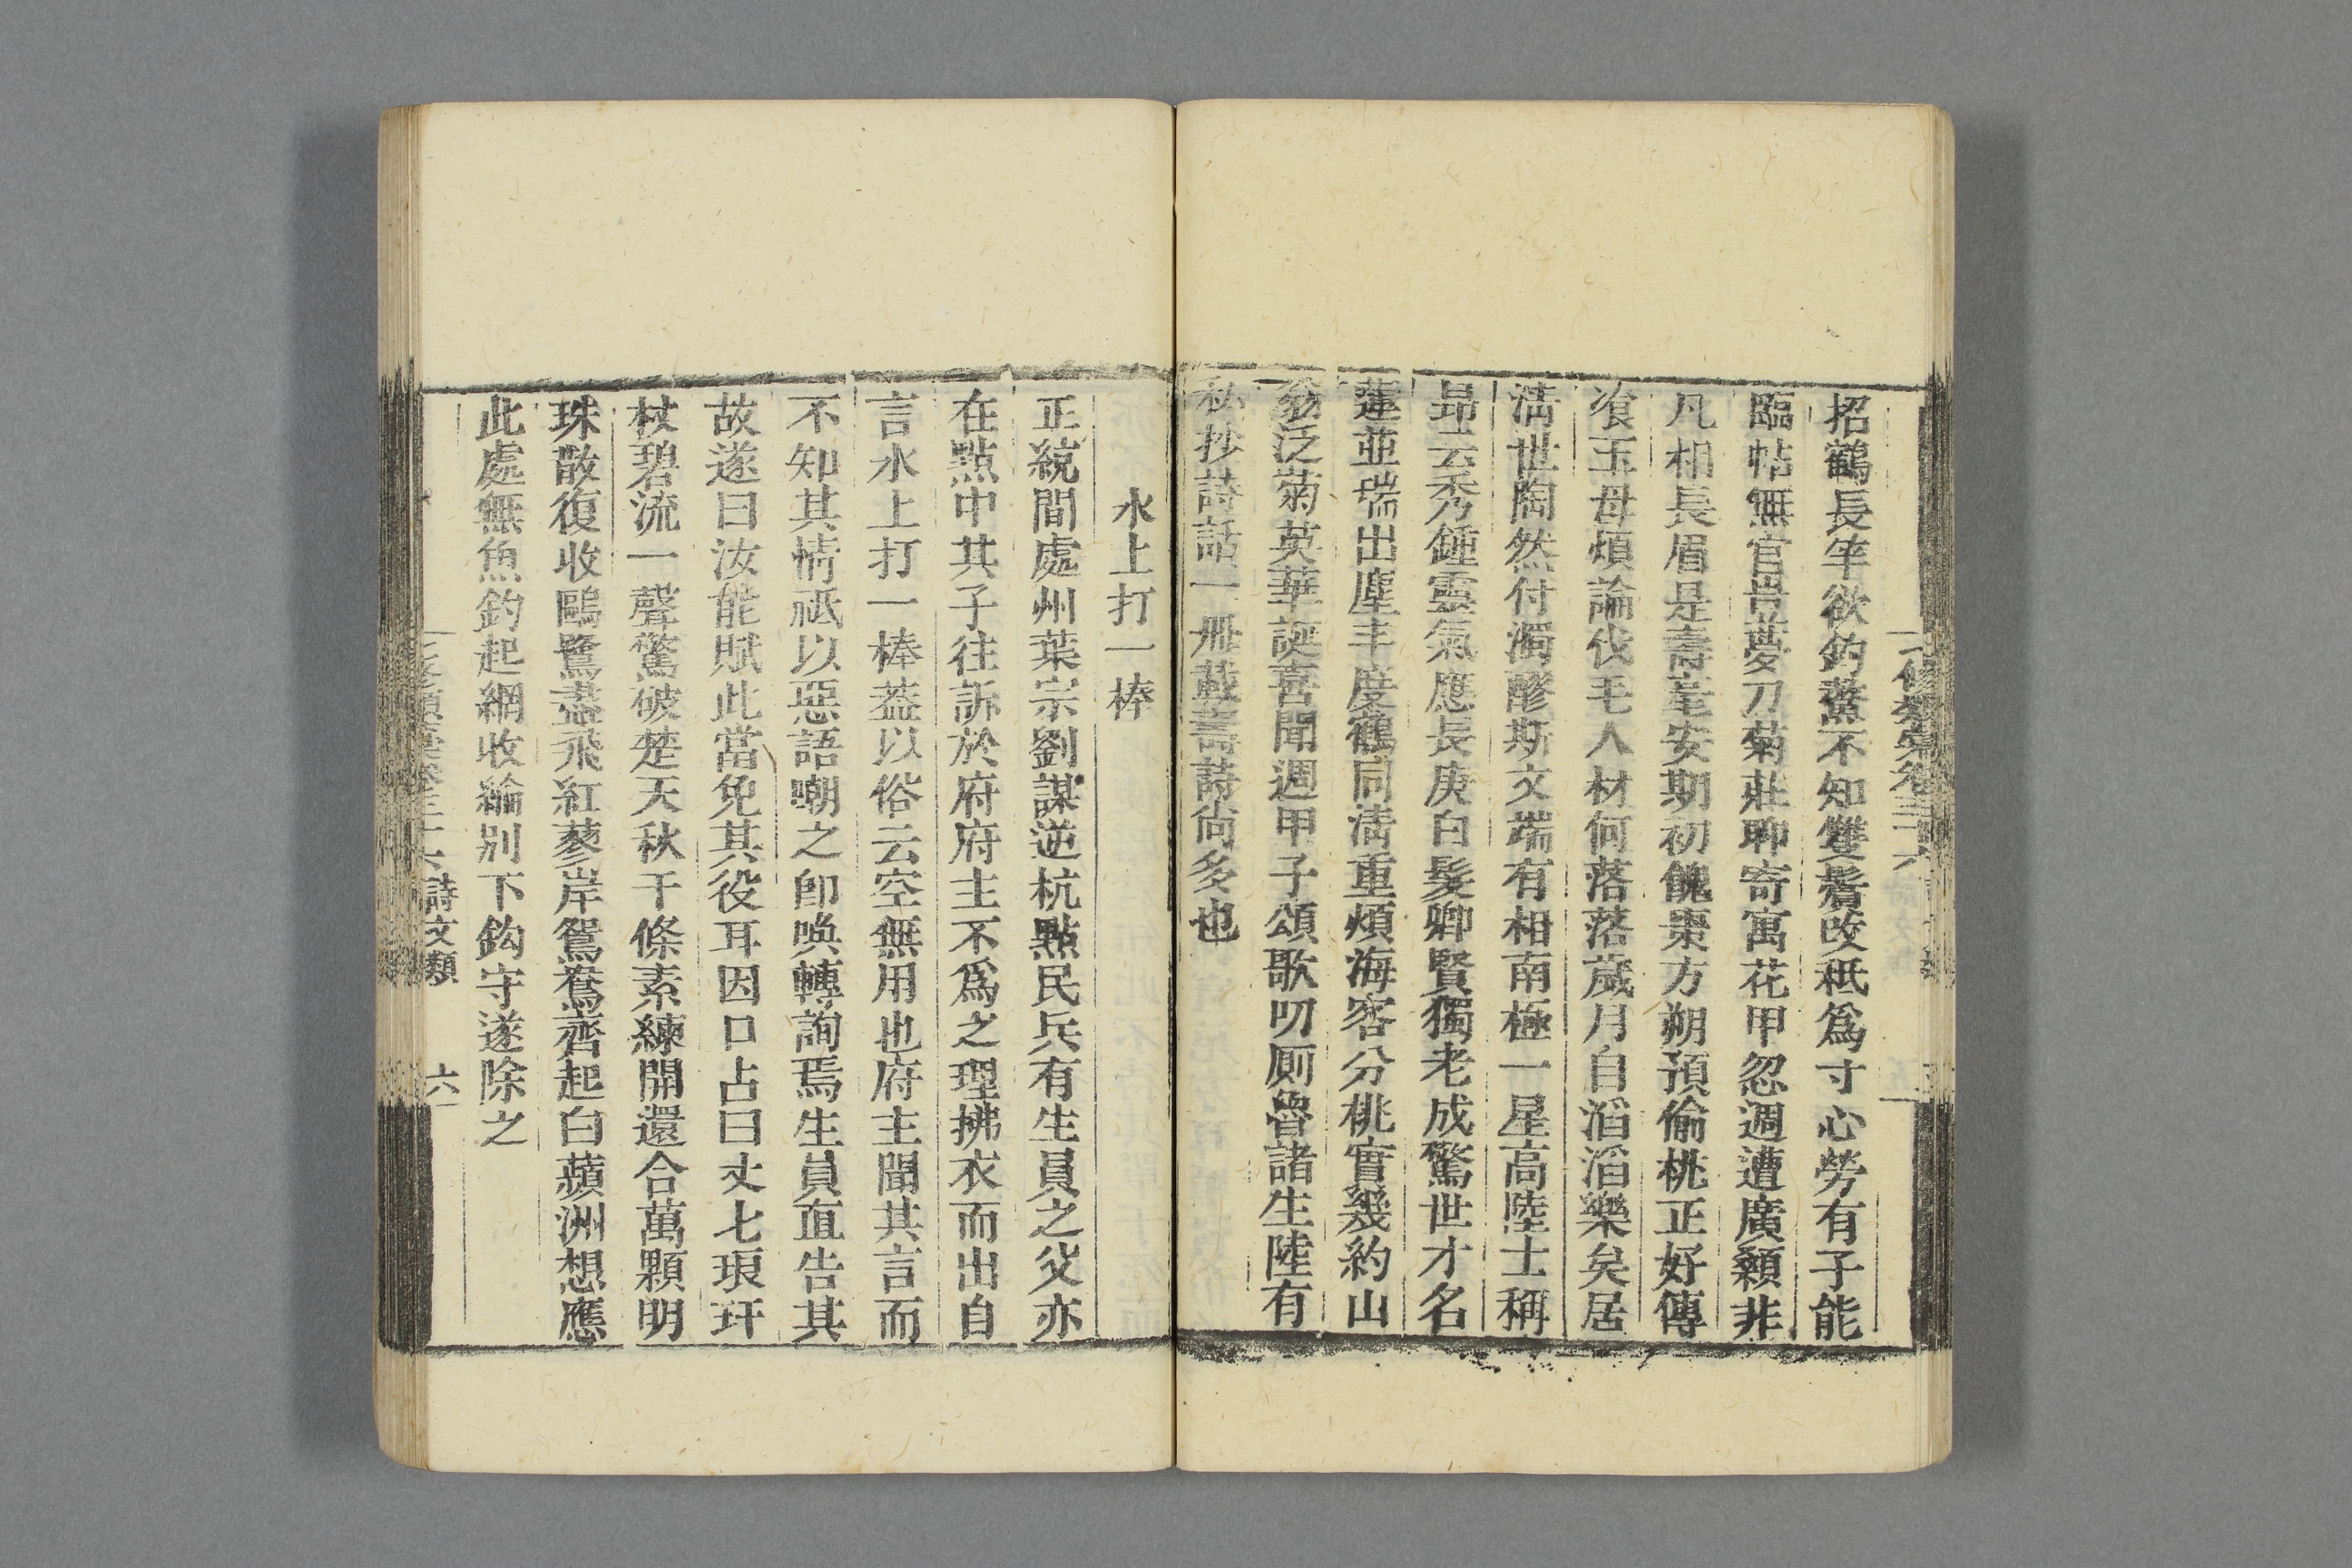 七修類稾卷三十六
招鶴長竿欲釣鰲不知雙鬢皎秪爲寸心勞有子能
臨帖無官豈夢刀菊莊聊寄寓花甲忽週遭廣顙非
凡相長眉是壽毫安期初餽棗方朔預偷桃正好傳
飡玉毋煩論伐毛人材何落落歲月自滔滔樂矣居
淸世陶然付濁醪斯文端有相南極一星高陸士稱
昻云秀鍾雲氣應長庚白髮卿賢獨老成驚世才名
蓮並瑞出塵丰度鶴同淸重煩海客分桃實幾約山
翁泛菊英華誕喜聞週甲子頌歌叨厠魯諸生陸有
私抄詩話一冊載壽詩尙多也
水上打一棒
正統間處州葉宗劉謀逆杭點民兵有生員之父亦
在點中其子往訴於府府主不爲之理拂衣而出自
言水上打一棒葢以俗云空無用也府主聞其言而
不知其情祇以惡語嘲之卽喚轉詢焉生員直告其
故遂曰汝能賦此當免其役耳因口占曰丈七琅玕
杖碧流一聲驚破楚天秋千條素練開還合萬顆明
珠散復收鷗鷺盡飛紅蓼岸鴛鴦齊起白蘋洲想應
此處無魚釣起網收綸別下鈎守遂除之
七修類稾卷三十六 詩文類 六